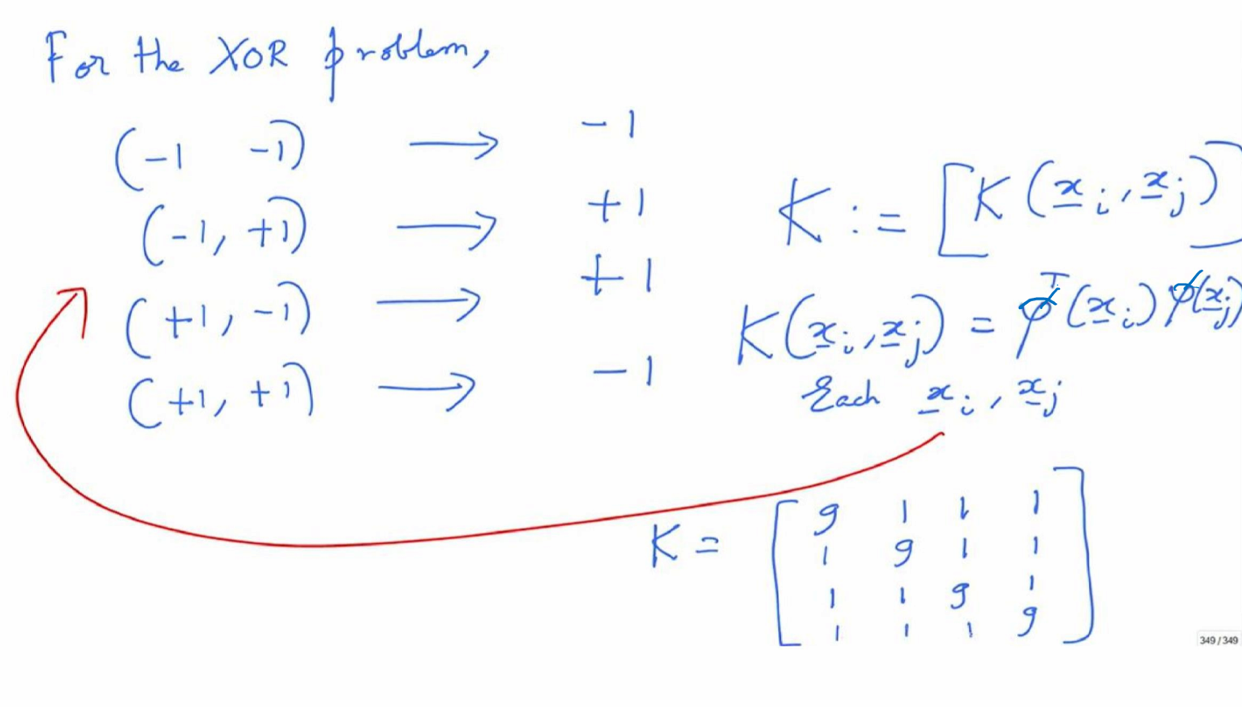 For the XOR problem,
(-1 -1) → -1
(-1, +1) → +1
(+1, -1) → +1
(+1, +1) → -1
K := [K(x̲ᵢ, x̲ⱼ)]
K(x̲ᵢ, x̲ⱼ) = φᵀ(x̲ᵢ) φ(x̲ⱼ)
Each x̲ᵢ, x̲ⱼ
K = [
9 1 1 1
1 9 1 1
1 1 9 1
1 1 1 9
]
349 / 349